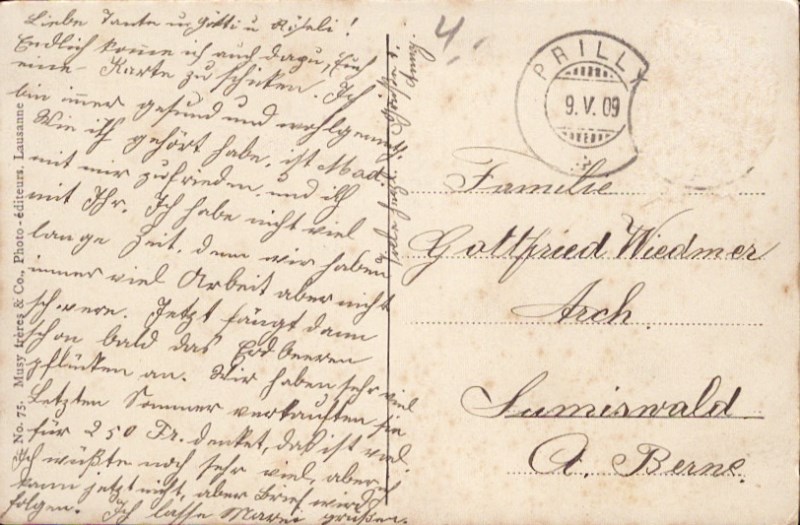 Liebe Tante u. Götti u. Röseli!
Endlich komme ich auch dazu, Euch
eine Karte zu schicken. Ich
bin immer gesund und wohlgemuth.
Wie ich gehört habe, ist Mad.
mit mir zufrieden, und ich
mit Ihr. Ich habe nicht viel
lange Zeit, denn wir haben
immer viel Arbeit aber nicht
schwere. Jetzt fängt dann
schon bald das Erdbeeren
pflücken an. Wir haben sehr viel
Letzten Sommer verkauften sie
für 250 Fr. denket, das ist viel.
Ich wüßte noch sehr viel, aber ich
kann jetzt nicht, aber Brief wird
folgen. Ich lasse Marei grüßen.
No. 75. Musy frères & Co., Photo-éditeurs, Lausanne
4.
PRILLY
9.V.09
Familie
Gottfried Wiedmer
Arch.
Sumiswald
Ct. Berne.